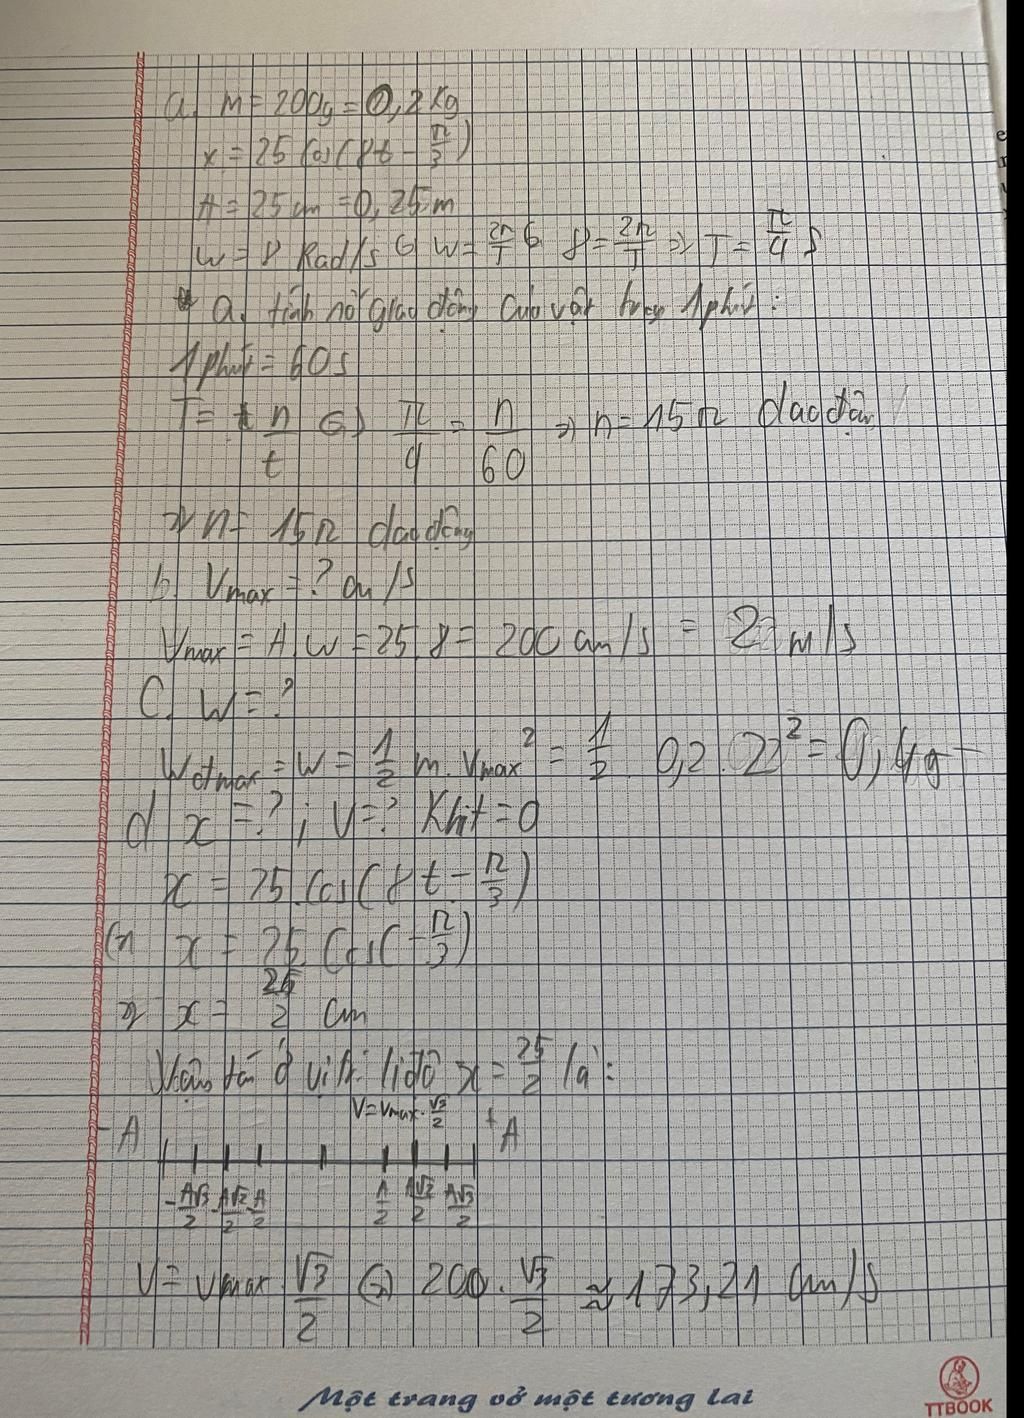 a. m = 200g = 0,2 kg
x = 25 cos(8t - π/3)
A = 25 cm = 0,25 m
w = 8 Rad/s ⇔ w = 2π/T ⇔ 8 = 2π/T ⇒ T = π/4 s
a. tính số giao động của vật trong 1 phút:
1 phút = 60s
T = n/t ⇔ π/4 = n/60 ⇒ n = 15π dao độn
⇒ n = 15π dao động
b. Vmax = ? cm/s
Vmax = A.w = 25.8 = 200 cm/s = 2 m/s
C. W = ?
Wđmax = W = 1/2 m.Vmax² = 1/2 . 0,2 . 2² = 0,4 J
d x = ? ; V = ? Khi t = 0
x = 25.cos(8t - π/3)
⇔ x = 25.cos(-π/3)
⇒ x = 25/2 cm
Vận tốc ở vị trí li độ x = 25/2 là:
V = Vmax . √3/2
-A +A
-A√3/2 -A√2/2 -A/2 A/2 A√2/2 A√3/2
V = Vmax . √3/2 ⇔ 200 . √3/2 ≈ 173,21 cm/s
Một trang vở một tương lai
TTBOOK